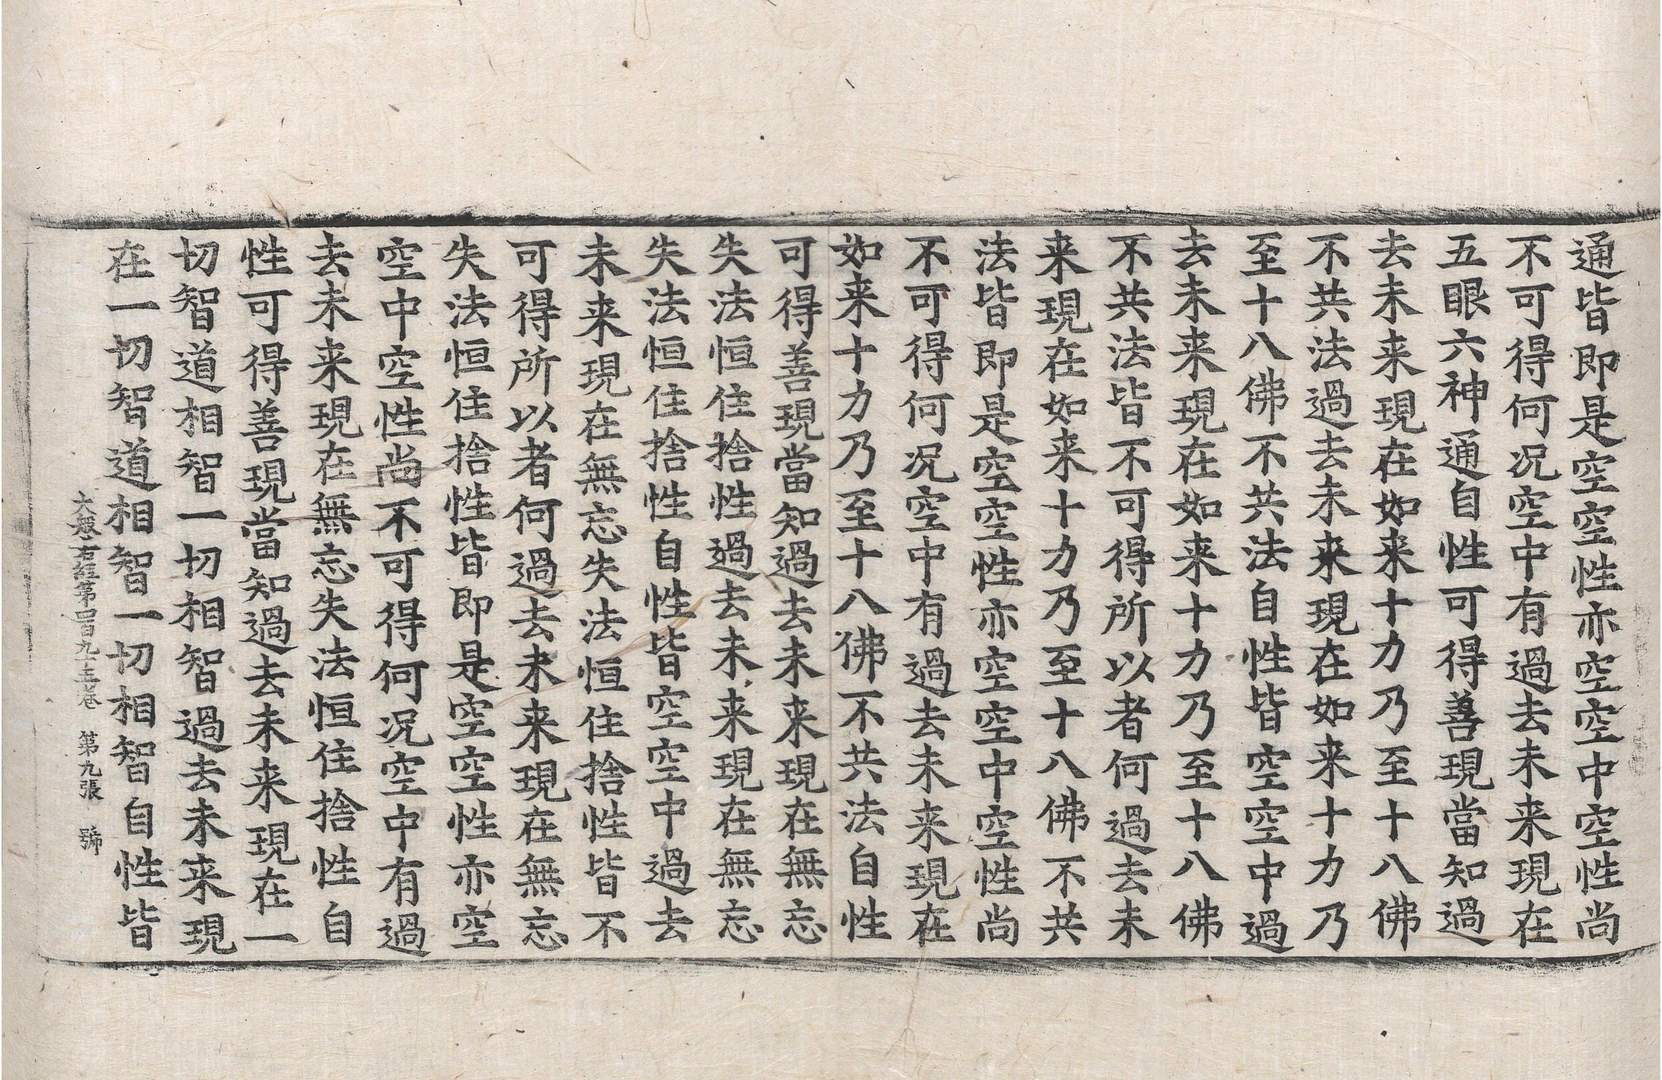 通皆即是空空性亦空空中空性尚
不可得何况空中有過去未来現在
五眼六神通自性可得善現當知過
去未来現在如来十力乃至十八佛
不共法過去未来現在如来十力乃
至十八佛不共法自性皆空空中過
去未来現在如来十力乃至十八佛
不共法皆不可得所以者何過去未
来現在如来十力乃至十八佛不共
法皆即是空空性亦空空中空性尚
不可得何况空中有過去未来現在
如来十力乃至十八佛不共法自性
可得善現當知過去未来現在無忘
失法恒住捨性過去未来現在無忘
失法恒住捨性自性皆空空中過去
未来現在無忘失法恒住捨性皆不
可得所以者何過去未来現在無忘
失法恒住捨性皆即是空空性亦空
空中空性尚不可得何况空中有過
去未来現在無忘失法恒住捨性自
性可得善現當知過去未来現在一
切智道相智一切相智過去未来現
在一切智道相智一切相智自性皆
大般若經第四百九十五卷 第九張 號